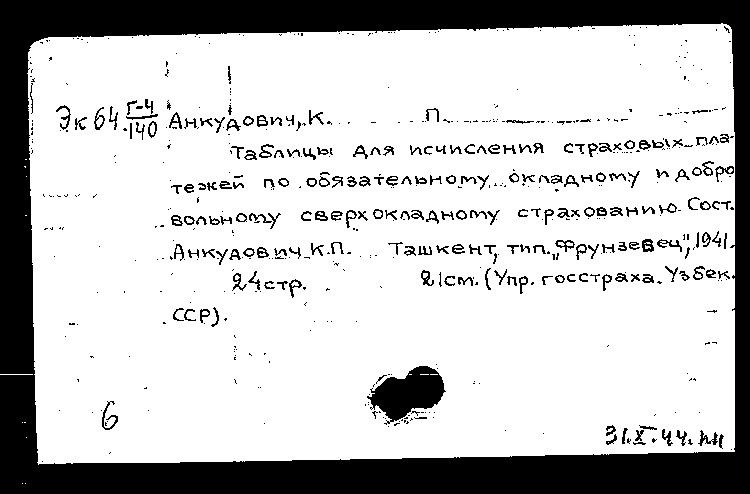 Эк 64 Г-4/140 Анкудович, К. П.
Таблицы для исчисления страховых пла-
тежей по обязательному окладному и добро
вольному сверхокладному страхованию. Сост.
Анкудович К.П. Ташкент, тип. „Фрунзевец", 1941.
24 стр. 21 cm. (Упр. госстраха. Узбек.
ССР).
6
31.X.44.